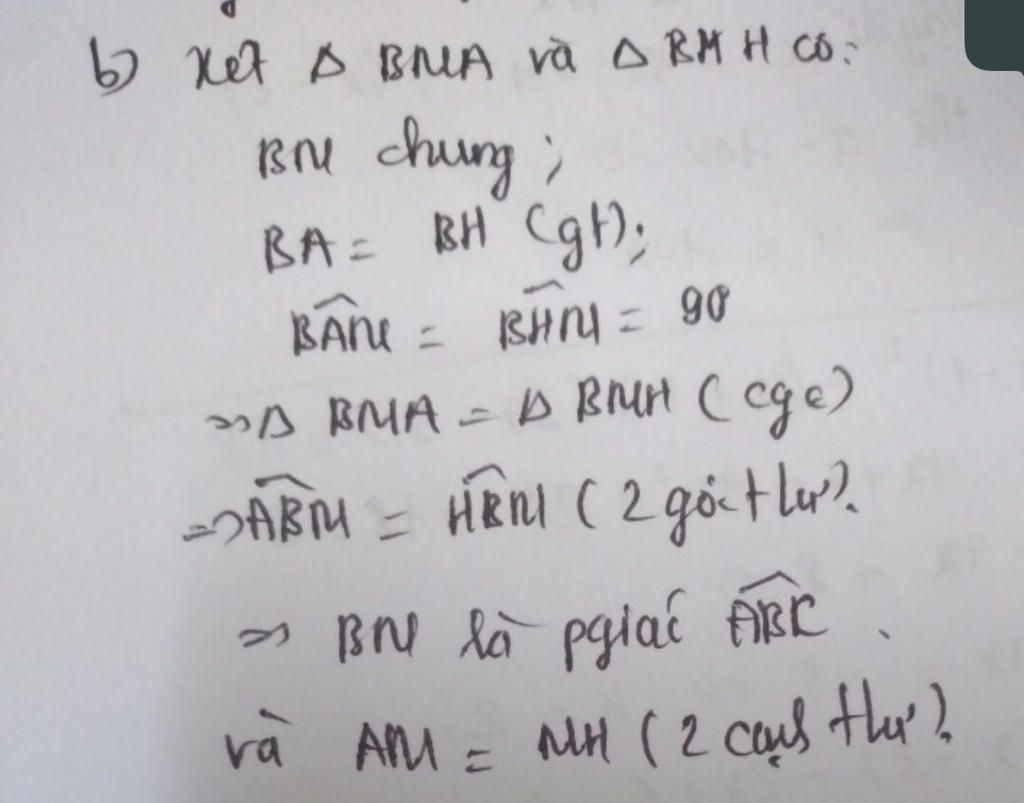 b) Xét Δ BMA và Δ BMH có:
BM chung;
BA = BH (gt);
BÂM = BĤM = 90
=> Δ BMA = Δ BMH (cgc)
=> AB̂M = HB̂M (2 góc tư)
=> BM là pgiác AB̂C.
và AM = MH (2 cạnh tư).